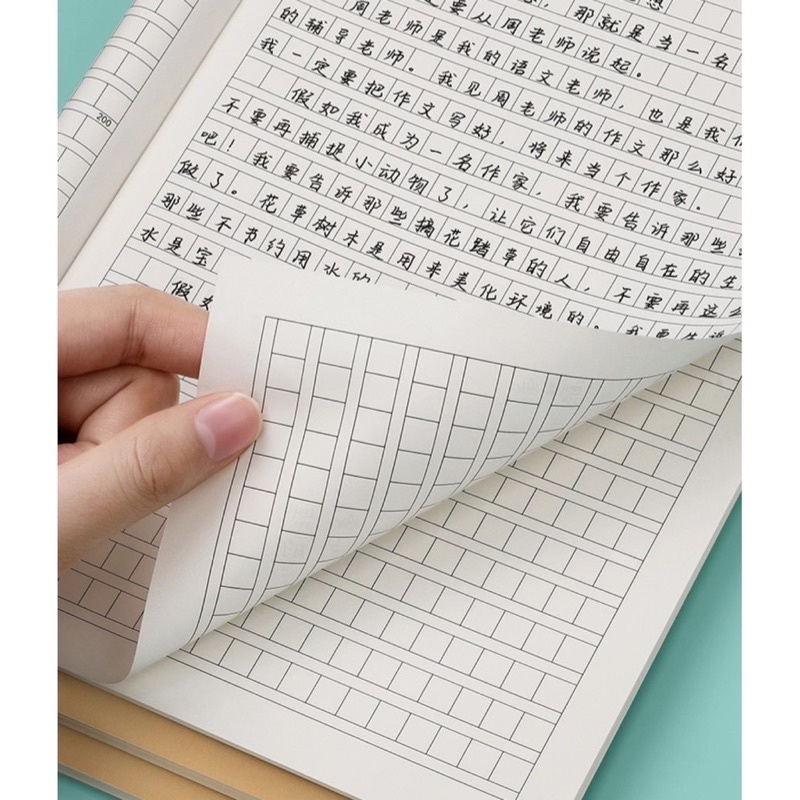 ，那就是当一名
要从周老师说起。
周老师是我的语文老师，也是我们
的辅导老师。我见周老师的作文那么好
我一定要把作文写好，将来当个作家。
假如我成为一名作家，我要告诉那些
不要再捕捉小动物了，让它们自由自在的生
吧！我要告诉那些摘花踏草的人，不要再这么
做了。花草树木是用来美化环境的。我要告诉
那些不节约用水的
水是宝
假如
200